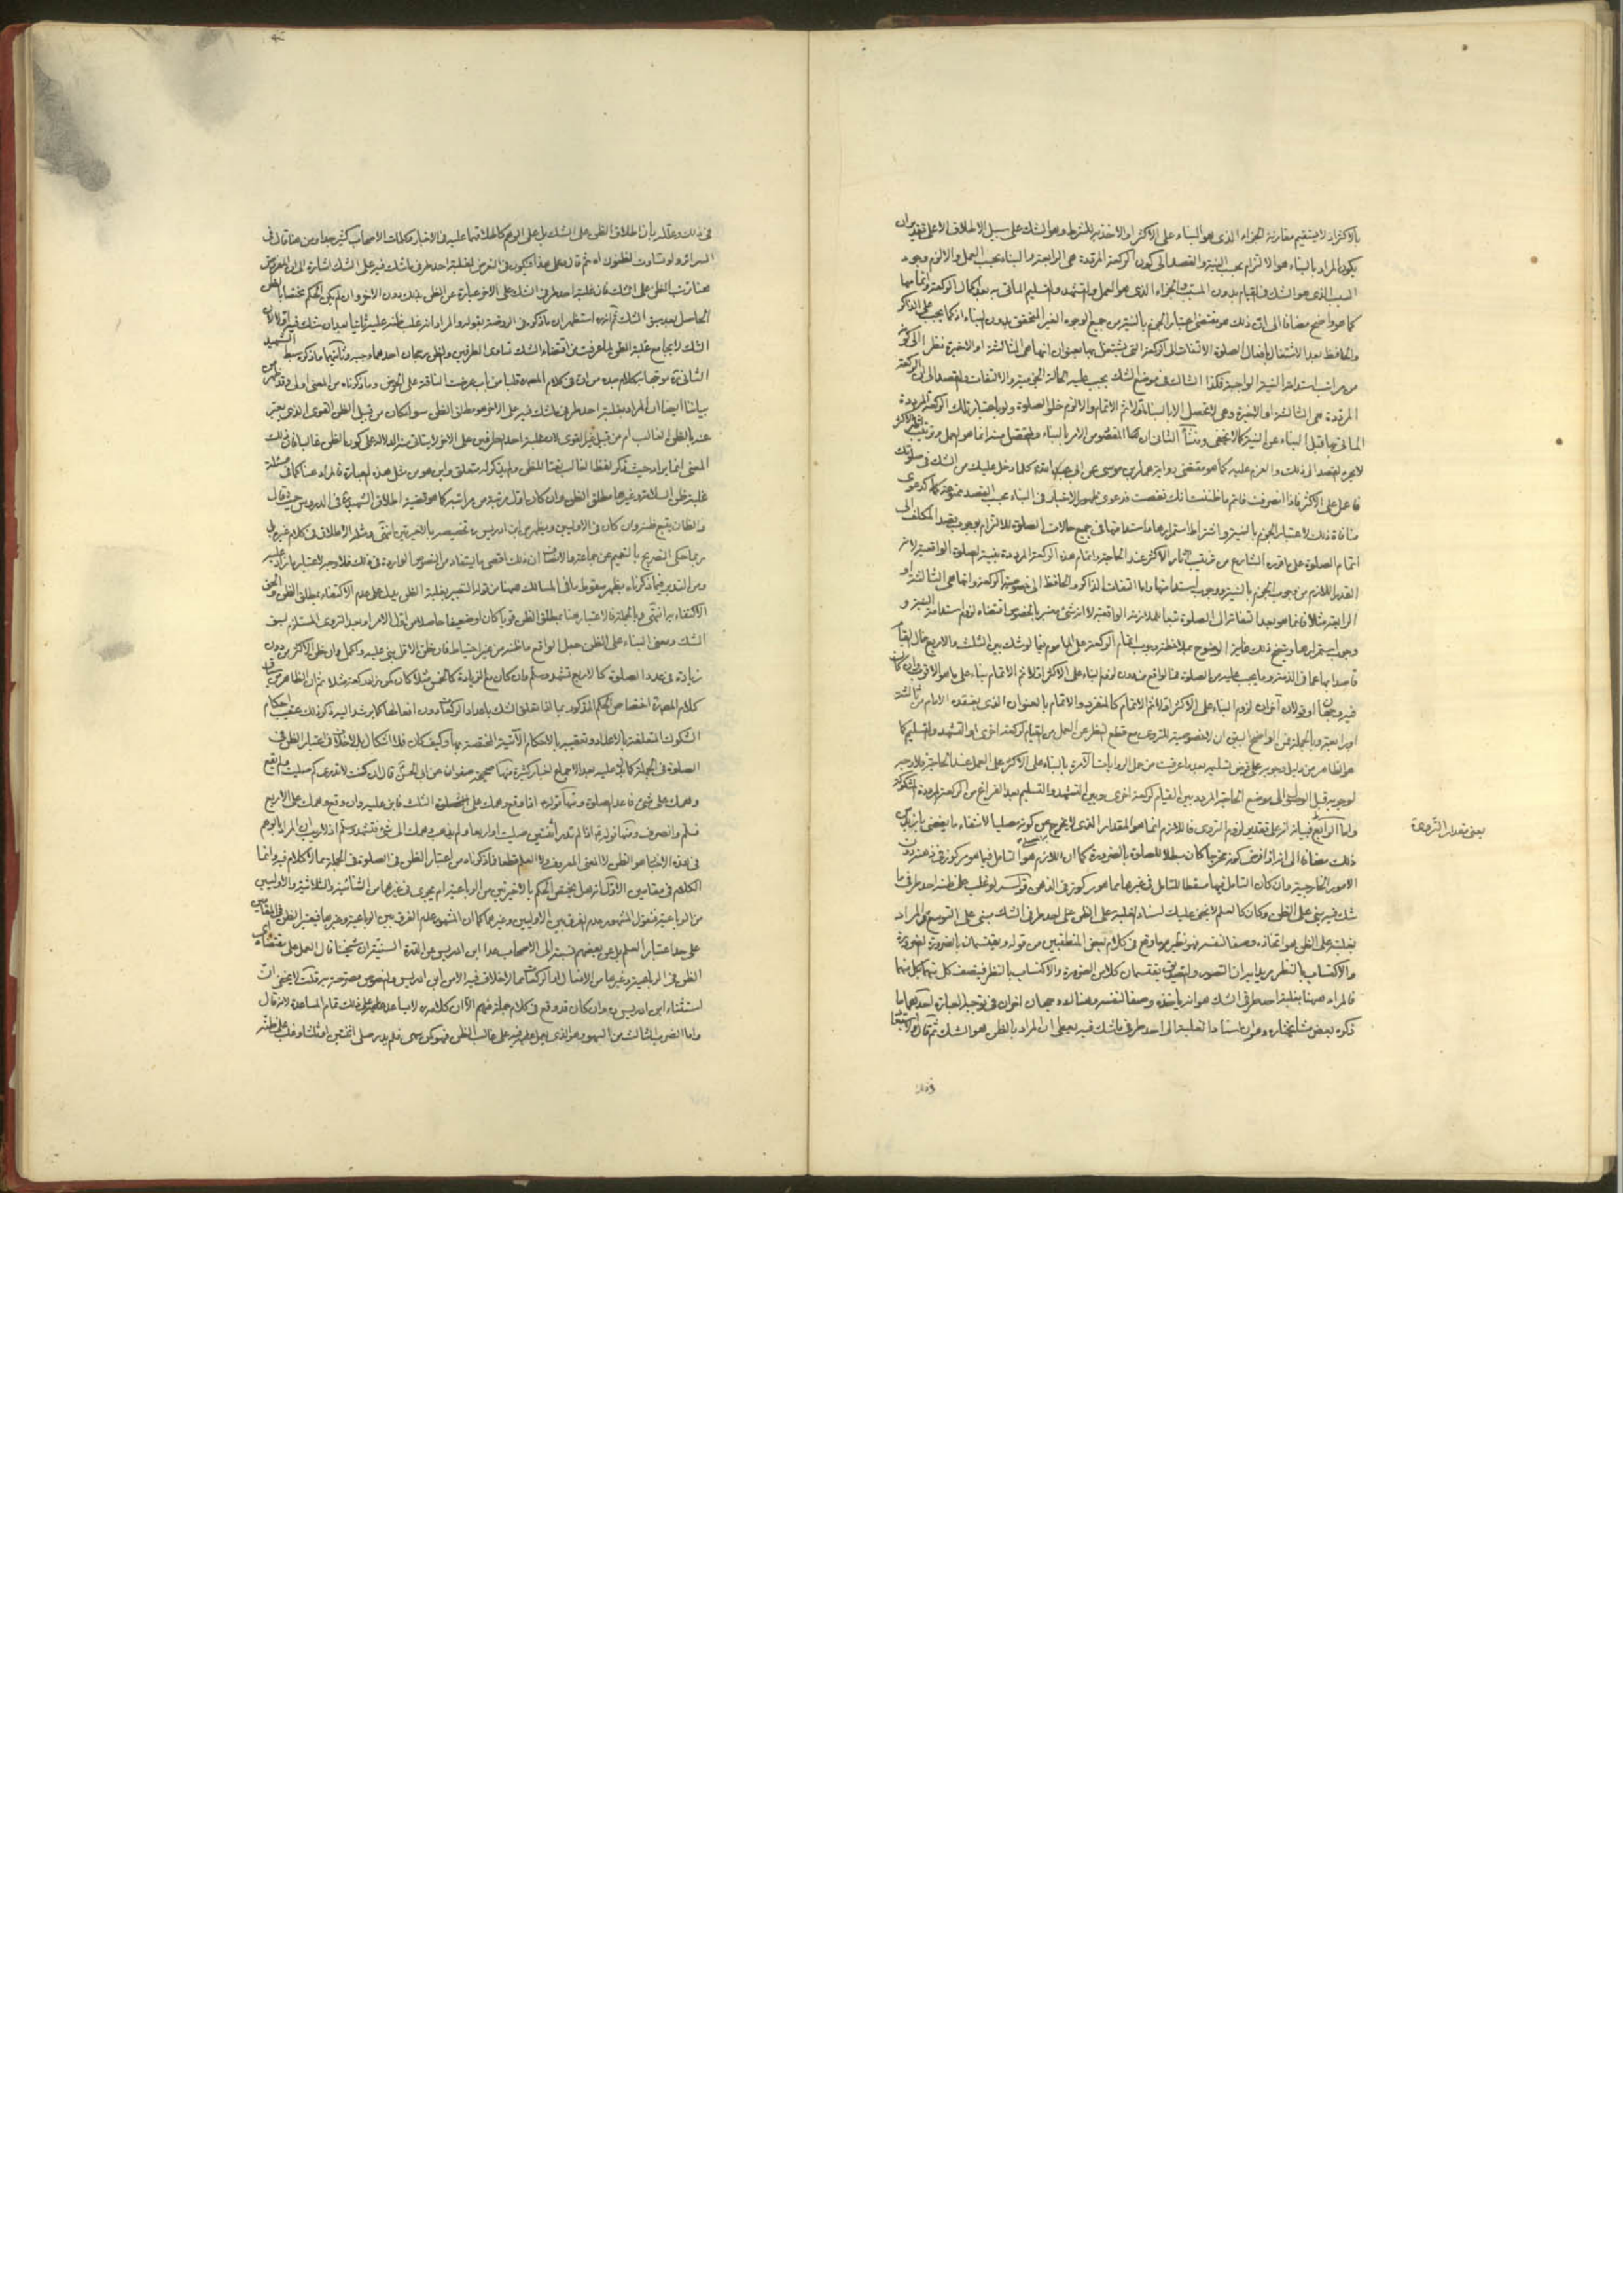 بالاكثر اذ لا يستقيم مقارنة الجزاء الذى هو البناء على الاكثر او الاخذ به للشرط وهو الشك على سبيل الاطلاق الا على تقدير ان
يكون المراد بالبناء هو الالتزام بحسب النية والقصد الى كون الركعة المرددة هى الرابعة والبناء بحسب العمل والا لزم وجود
السبب الذى هو الشك فى القيام بدون المسبب والجزاء الذى هو العمل والتشهد والتسليم المأتى به بعد اكمال الركعة واتمامها
كما هو واضح مضافا الى ان ذلك هو مقتضى اعتبار الجزم بالنية من جميع الوجوه الغير المتحقق بدون البناء اذ كما يجب على الذاكر
والحافظ بعد الاشتغال بافعال الصلوة الالتفات الى الركعة التى يشتغل بها بعنوان انها هى الثالثة او الاخيرة نظرا الى كونه
من مراتب استدامة النية الواجبة فكذا الشاك فى موضع الشك يجب عليه والالتفات والقصد الى ان الركعة
المرددة هى الثالثة او الاخيرة وهى لا تحصل الا بالبناء والا لزم خلو الصلوة ولو باعتبار تلك الركعة المرددة
المأتى بها قبل البناء عن النية كما لا يخفى الثانى ان المقصود من الامر بالبناء انما هو العمل
لا مجرد القصد الى ذلك والعزم عليه كما هو مقتضى رواية عمار بن موسى عن ابى عبد الله كلما دخل عليك من الشك فى صلوتك
فاعمل على الاكثر فاذا انصرفت فاتم ما ظننت انك نقصت فدعوى ظهور الاخبار فى البناء بحسب القصد ممنوعة كدعوى
منافاة ذلك لاعتبار الجزم بالنية واشتراط استمرارها واستدامتها فى جميع حالات الصلوة للالتزام بوجوب قصد المكلف الى
اتمام الصلوة على ما قرره الشارع من ترتيب اثار الاكثر عند الحاجة واتمام هذه الركعة المرددة بنية الصلوة الواقعية لانه
القدر اللازم من وجوب الجزم بالنية ووجوب استدامتها واما التفات الذاكر والحافظ الى خصوصية الركعة وانها هى الثالثة او
الرابعة مثلا فانما هو بعد التفاته الى الصلوة تبعا لملازمة الواقعية لا انه شئ معتبر بالخصوص اقتضاه لزوم استدامة النية و
وجوب استمرارها ويتضح ذلك غاية الوضوح بملاحظة وجوب اتمام الركعة على المأموم فيما لو شك بين الثلث والاربع حال القيام
قاصدا بها عما فى الذمة وما يجب عليه من الصلوة فى الواقع
اوبرابعة وبالجملة فمن الواضح البين ان لا خصوصية للتروى مع قطع النظر عن العمل من القيام لركعة اخرى او التشهد والتسليم كما
هو الظاهر من دليل وجوبه على فرض تسليمه بعد ما عرفت من حمل الروايات الآمرة بالبناء على الاكثر على العمل عند الحاجة فلا وجه
لوجوبه قبل الوصول الى موضع الحاجة المردد بين القيام لركعة اخرى وبين التشهد والتسليم بعد الفراغ من الركعة المرددة المشكوكة
واما الرابع فبيانه انه على تقدير لزوم التروى فاللازم انما هو المقدار الذى لا يخرج عن كونه مصليا لانتفاء ما يقضى بازيد من
ذلك مضافا الى انه اذا فرض كونه مخرجا كان مبطلا للصلوة بالضرورة كما ان اللازم هو التأمل فيما هو مركوز فى ذهنه دون
الامور الخارجية وان كان التأمل فيها مسقطا للتأمل فى غيرها مما هو مركوز فى الذهن قوله لو غلب على ظنه احد طرفى ما
شك فيه بنى على الظن وكان كالعلم لا يخفى عليك اسناد الغلبة على الظن على احد طرفى الشك مبنى على التوسع والمراد
بغلبته على الظن هو اتخاذه وصفا لنفسه فهو نظير ما وقع فى كلام بعض المنطقيين من قوله ويقتسمان بالضرورة الضرورة
والاكتساب بالنظر يريد به ان التصور والتصديق يقتسمان كلا من الضرورة والاكتساب بالنظر فيتصف كل منهما بكل منهما
فالمراد هيهنا بغلبة احد طرفى الشك هو انه يأخذه وصفا لنفسه وهنا وجهان اخران فى توجيه العبارة احدهما ما
ذكره بعض مشايخنا وهو ان اسناد الغلبة الى احد طرفى ما شك فيه يعطى ان المراد بالظن هو الشك ثم قال
فى ذلك
يعنى مقدار التروى
فى ذلك وعلله بان اطلاق الظن على الشك بل على الوهم كاطلاقهما عليه فى الاخبار وكلمات الاصحاب كثير جدا ومن هنا قال فى
السرائر ولو تساوت الظنون اه ثم قال وعلى هذا فيكون فى التعرض لغلبة احد طرفى ما شك فيه على الشك اشارة الى ان المفروض
هنا ترتب الظن على الشك فان غلبة احد طرفى الشك على الاخر عبارة عن الظن بذلك دون الاخر وان لم يكن الحكم مختصا بالظن
الحاصل بعد سبق الشك ثم انه استظهر ان ما ذكره فى الروضة بقوله والمراد انه غلب ظنه عليه ثانيا بعد ان شك فيه اولا لان
الشك لا يجامع غلبة الظن لما عرفت من اقتضاء الشك تساوى الطرفين والظن رجحان احدهما وجيه وثانيهما ما ذكره سبط الشهيد
الثانى موجها به كلام جده من ان فى كلام المصره قلبا من باب عرضت الناقة على الحوض وما ذكرناه من المعنى اولى وقد ظهر من
بياننا ايضا ان المراد بغلبة احد طرفى ما شك فيه على الاخر هو مطلق الظن سواء كان من قبيل الظن القوى الذى يعبر
عنه بالظن الغالب ام من قبيل غير القوى لان غلبة احد الطرفين على الاخر لا يتأتى منه الدلالة على كون الظن غالبا فان ذلك
المعنى انما يراد حيث ذكر لفظ الغالب نعتا للظن ولم يذكر له متعلق واين هو من مثل هذه العبارة فالمراد هنا كما فى مسئلة
غلبة ظن السلامة وغيرها مطلق الظن وان كان اقل مرتبة من مراتبه كما هو قضية اطلاق الشهيد فى الدروس حيث قال
والظان يتبع ظنه وان كان فى الاوليين ويظهر من ابن ادريس ره تخصيصه بالاخيرتين انتهى ومثله الاطلاق فى كلام غيره بل
ربما حكى التصريح بالتعميم عن جماعة والانصاف ان ذلك اقصى ما يستفاد من النصوص الواردة فى ذلك فلا وجه لاعتبار ما زاد عليه
ومن التدبر فيما ذكرناه يظهر سقوط ما فى المسالك هيهنا من قوله التعبير بغلبة الظن يدل على عدم الاكتفاء بمطلق الظن والحق
الاكتفاء به انتهى وبالجملة فالاعتبار هنا بمطلق الظن قويا كان او ضعيفا حاصلا من اول الامر او بعد التروى المستلزم لسبق
الشك ومعنى البناء على الظن جعل الواقع ما ظنه من غير احتياط فان ظن الاقل بنى عليه واكمل وان ظن الاكثر من دون
زيادة فى عدد الصلوة كالاربع تشهد وسلم وان كان مع الزيادة كالخمس مثلا كان كمن زاد ركعة مثلا ثم ان الظاهر من سياق
كلام المصره اختصاص الحكم المذكور بما اذا تعلق الشك باعداد الركعات دون افعالها كما يرشد اليه ذكر ذلك عقيب احكام
الشكوك المتعلقة بالاعداد وتعقيبه بالاحكام الآتية المختصة بها وكيف كان فلا اشكال بل لا خلاف فى اعتبار الظن فى
الصلوة فى الجملة كما دل عليه بعد الاجماع اخبار كثيرة منها صحيحة صفوان عن ابى الحسن قال ان كنت لا تدرى كم صليت ولم يقع
وهمك على شئ فاعد الصلوة ومنها قوله اذا وقع وهمك على الثلاث فابن عليه وان وقع وهمك على الاربع
فسلم وانصرف ومنها قوله اذا لم تدر أثنتين صليت او اربعا ولم يذهب وهمك الى شئ فتشهد وسلم اذ لا ريب ان المراد بالوهم
فى هذه الاخبار هو الظن لا المعنى المعروف ولا العلم قطعا فما ذكرناه من اعتبار الظن فى الصلوة فى الجملة مما لا كلام فيه وانما
الكلام فى مقامين الاول انه هل يختص الحكم بالاخيرتين من الرباعية ام يجرى فى غيرهما من الثنائية والثلاثية والاوليين
من الرباعية فنقول المشهور عدم الفرق بين الاوليين وغيرهما كما ان المشهور عدم الفرق بين الرباعية وغيرها فيعتبر الظن فى المقامين
على حد اعتبار العلم بل عن بعضهم نسبته الى الاصحاب عدا ابن ادريس وعن الدرة السنية ان شيخنا قال العمل على مقتضاه اى
الظن فى الرباعية وغيرها من الافعال واعداد الركعات مما لا خلاف فيه الا من ابن ادريس والنصوص مصرحة به قلت لا يخفى ان
استثناء ابن ادريس ره وان كان قد وقع فى كلام جملة منهم الا ان كلامه ره لا يساعد على ذلك تمام المساعدة لانه قال
واما الضرب الثالث من السهو وهو الذى يعمل فيه على غالب الظن فهو كمن سهى فلم يدر صلى اثنتين او ثلثا وغلب على ظنه